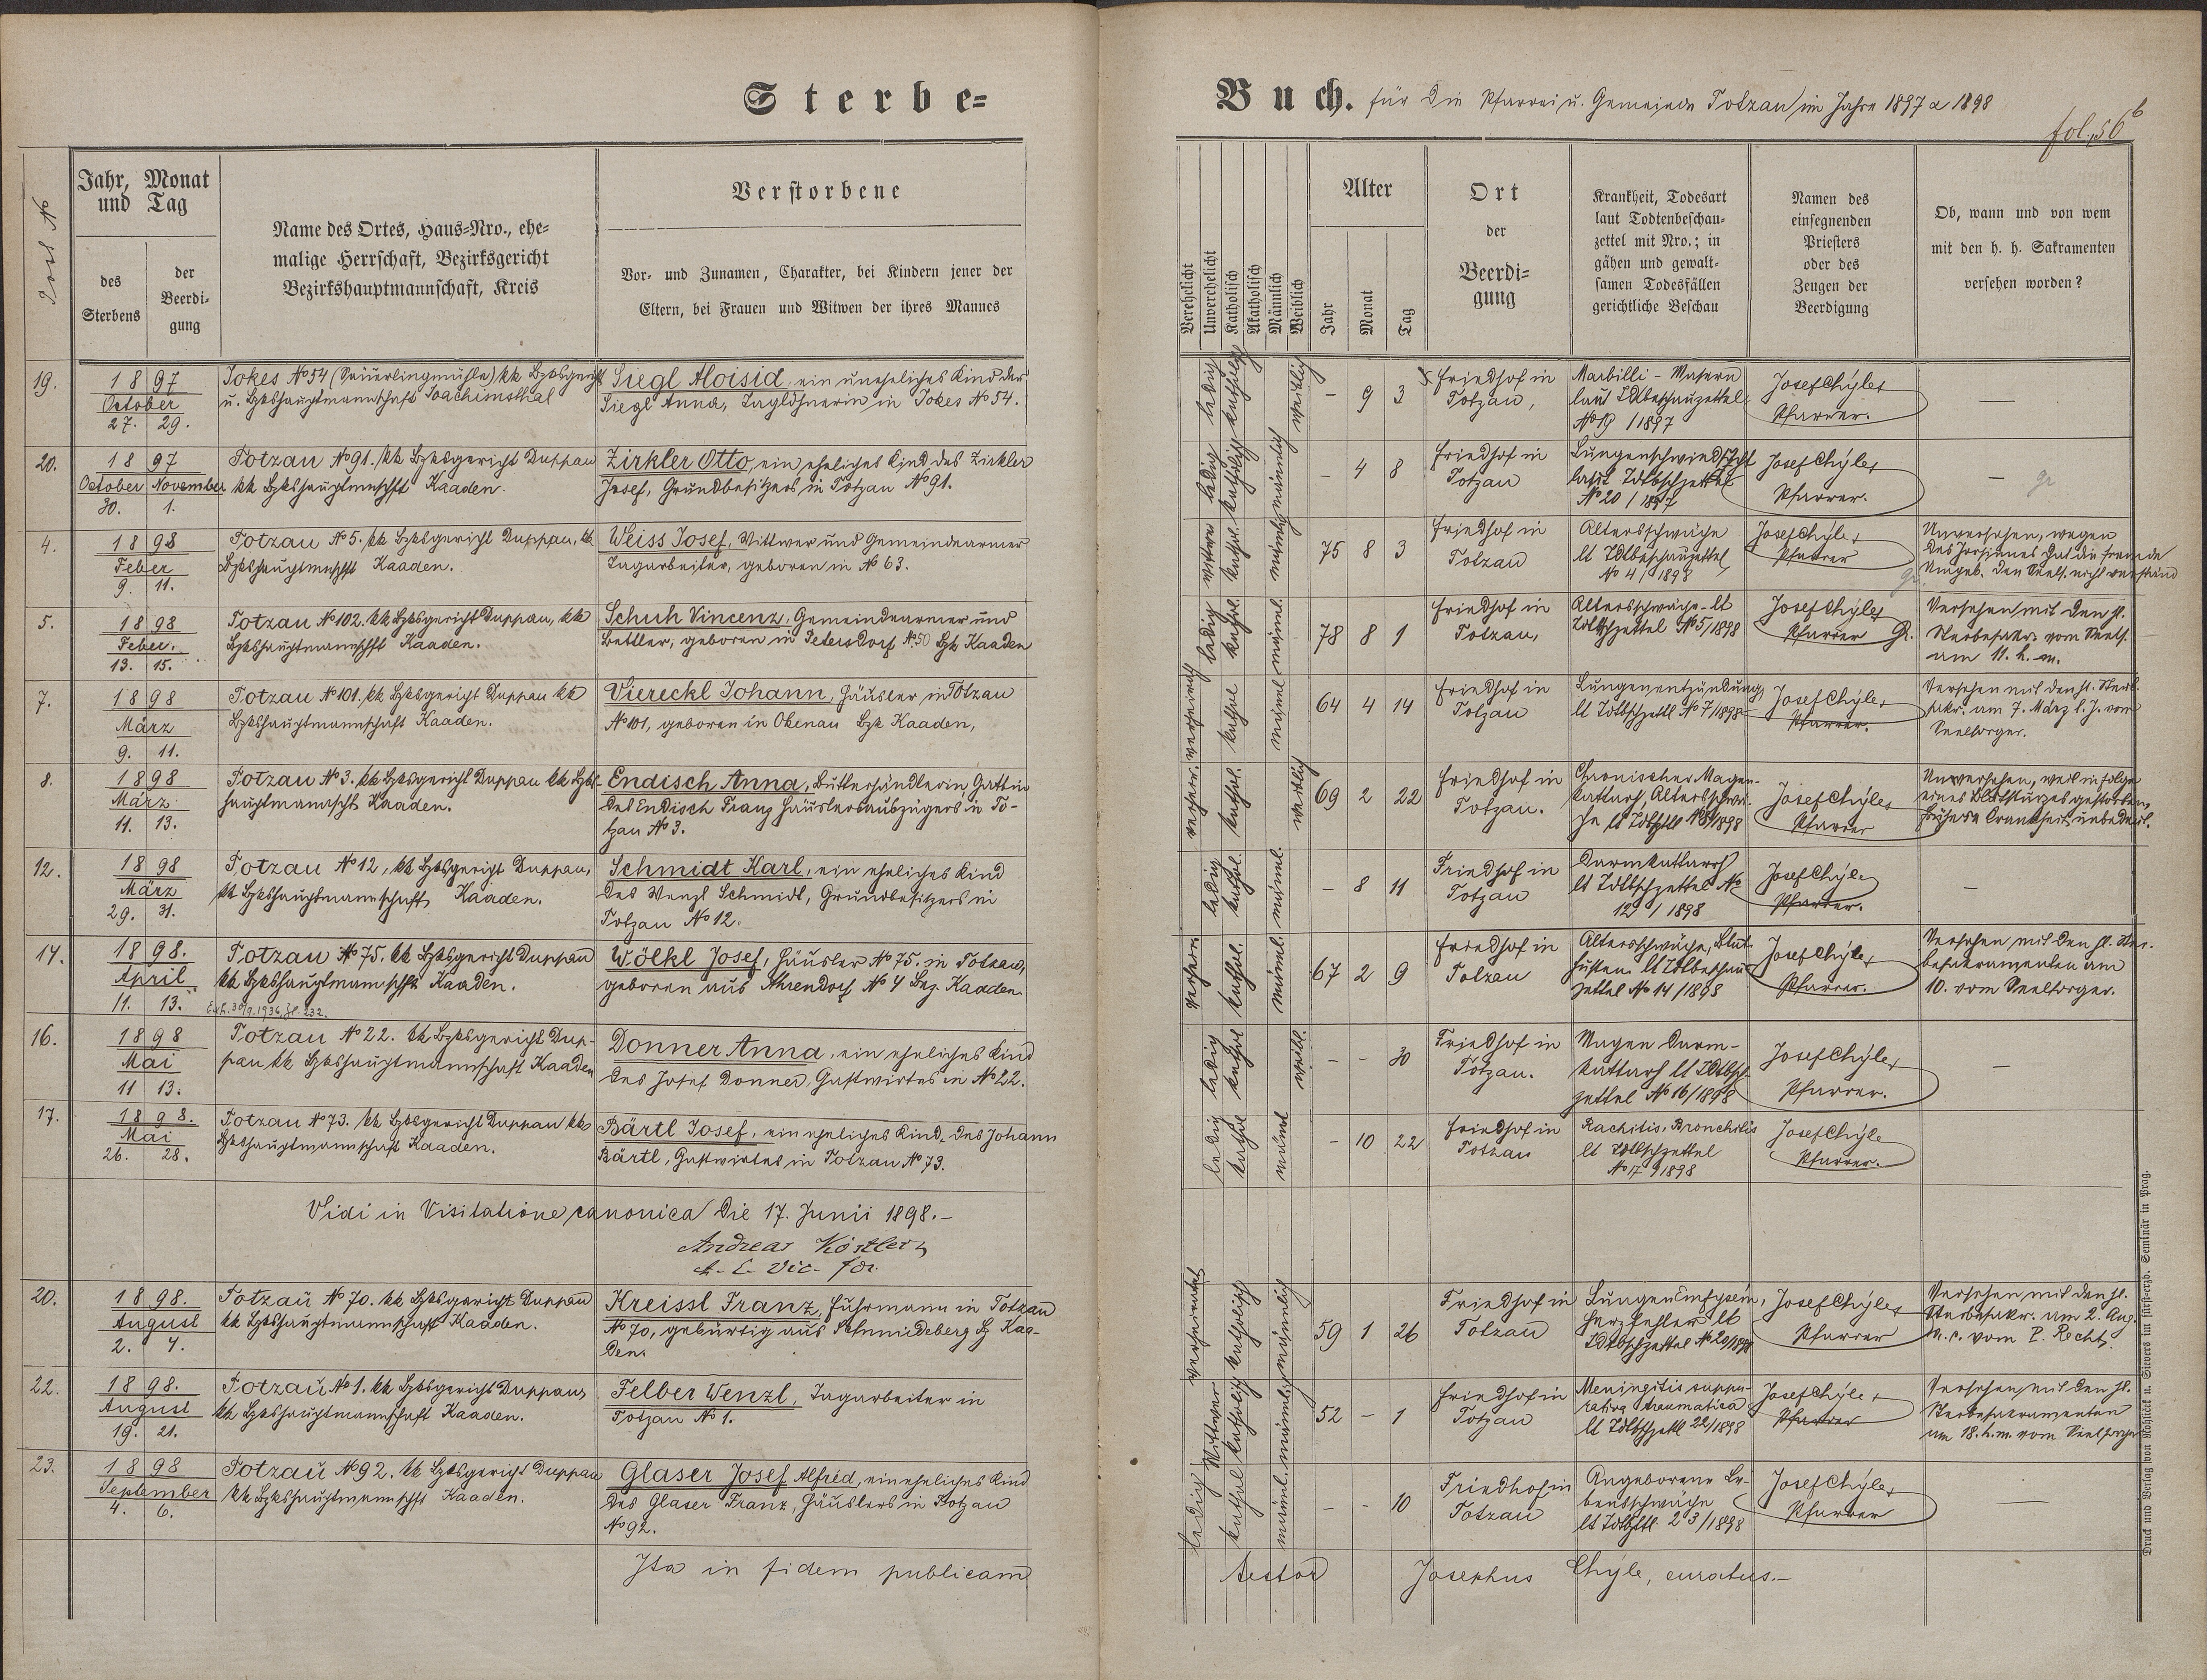 Sterbe-
Buch. für die Pfarrei u. Gemeinde Totzau im Jahre 1897 & 1898
fol. 56 b
Post No
Jahr, Monat
und Tag
des
Sterbens
der
Beerdi-
gung
Name des Ortes, Haus-Nro., ehe-
malige Herrschaft, Bezirksgericht
Bezirkshauptmannschaft, Kreis
Verstorbene
Vor- und Zunamen, Charakter, bei Kindern jener der
Eltern, bei Frauen und Witwen der ihres Mannes
Verehelicht
Unverehelicht
Katholisch
Akatholisch
Männlich
Weiblich
Alter
Jahr
Monat
Tag
Ort
der
Beerdi-
gung
Krankheit, Todesart
laut Todtenbeschau-
zettel mit Nro.; in
gähen und gewalt-
samen Todesfällen
gerichtliche Beschau
Namen des
einsegnenden
Priesters
oder des
Zeugen der
Beerdigung
Ob, wann und von wem
mit den h. h. Sakramenten
versehen worden?
19.
1897
October
27. 29.
Jokes No 54 (Säuerlingmühle) kk Bzksgericht
u. Bzkshauptmannschaft Joachimsthal
Siegl Aloisia, ein uneheliches Kind der
Siegl Anna, Taglöhnerin in Jokes No 54.
ledig katholisch weiblich
- 9 3
Friedhof in
Totzau,
Morbilli - Masern
laut Tdtbeschauzettel
No 19 / 1897
Josef Chýle,
Pfarrer.
—
20.
1897
October November
30. 1.
Totzau No 91. kk Bzksgericht Duppau
kk Bzkshauptmnschft Kaaden
Zirkler Otto, ein eheliches Kind des Zirkler
Josef, Grundbesitzers in Totzau No 91.
ledig katholisch männlich
- 4 8
Friedhof in
Totzau
Lungenschwindsucht
laut Tdtbschzettel
No 20 / 1897
Josef Chýle,
Pfarrer.
—
4.
1898
Feber
9. 11.
Totzau No 5. kk Bzksgericht Duppau, kk
Bzkshauptmnschft Kaaden.
Weiss Josef, Wittwer und Gemeindearmer
Tagarbeiter, geboren in No 63.
wittwer kathol. männlich
75 8 3
Friedhof in
Totzau
Altersschwäche
lt Tdtbeschauzettel
No 4 / 1898
Josef Chýle,
Pfarrer
Unversehen, wegen
des Irrsinnes hat die fremde
Umgeb. den Seels. nicht verständ
5.
1898
Feber.
13. 15.
Totzau No 102. kk Bzksgericht Duppau, kk
Bzkshauptmannschft Kaaden.
Schuh Vincenz, Gemeindearmer und
Bettler, geboren in Petersdorf No 50 Bzk Kaaden
ledig kathol. männl.
78 8 1
Friedhof in
Totzau,
Altersschwäche - lt
Tdtbschzettel No 5/1898
Josef Chýle,
Pfarrer
Versehen mit den hl.
Sterbesakr. vom Seels.
am 11. h. m.
7.
1898
März
9. 11.
Totzau No 101. kk Bzksgericht Duppau kk
Bzkshauptmannschaft Kaaden.
Viereckl Johann, Häusler in Totzau
No 101, geboren in Okenau Bzk Kaaden,
verheirath kathol männl
64 4 14
Friedhof in
Totzau
Lungenentzündung
lt Tdtbschzettl No 7/1898
Josef Chýle,
Pfarrer.
Versehen mit den hl. Sterb.
sakr. am 7. März l. J. vom
Seelsorger.
8.
1898
März
11. 13.
Totzau No 3. kk Bzksgericht Duppau kk Bzks-
hauptmannschft Kaaden.
Endisch Anna, Butterhändlerin Gattin
des Endisch Franz Häuslerauszügers in To-
tzau No 3.
verheir. kathol. weiblich
69 2 22
Friedhof in
Totzau.
Chronischer Magen-
kattarh, Altersschwä-
che lt Tdtbschzttl No 8/1898
Josef Chýle,
Pfarrer
Unversehen, weil in folge
eines Blutsturzes gestorben,
frühere Krankheit unbedeut.
12.
1898
März
29. 31.
Totzau No 12, kk Bzksgericht Duppau,
kk Bzkshauptmannschaft Kaaden.
Schmidt Karl, ein eheliches Kind
des Wenzl Schmidt, Grundbesitzers in
Totzau No 12.
ledig kathol. männl.
- 8 11
Friedhof in
Totzau
Darmkattarrh
lt Tdtbschzettel No
12 / 1898
Josef Chýle
Pfarrer.
—
14.
1898.
April
11. 13.
Totzau No 75. kk Bzksgericht Duppau
kk Bzkshauptmannschft Kaaden.
Wölkl Josef, Häusler No 75. in Totzau,
geboren aus Ahrendorf No 4 Bez. Kaaden.
verheir. kathol. männl.
67 2 9
Friedhof in
Totzau
Altersschwäche, Blut-
husten. lt Tdtbeschau
zettel No 14/1898
Josef Chýle,
Pfarrer.
Versehen mit den hl. Ster-
besakramenten am
10. vom Seelsorger.
16.
1898
Mai
11 13.
Totzau No 22. kk Bzksgericht Dup-
pau kk Bzkshauptmannschaft Kaaden
Donner Anna, ein eheliches Kind
des Josef Donner, Gastwirtes in No 22.
ledig kathol weibl.
- - 30
Friedhof in
Totzau.
Magen Darm-
kattarh lt Tdtbsch-
zettel No 16/1898
Josef Chýle,
Pfarrer.
—
17.
1898.
Mai
26. 28.
Totzau No 73. kk Bzksgericht Duppau kk
Bzkshauptmannschaft Kaaden.
Bärtl Josef, ein eheliches Kind, des Johann
Bärtl, Gastwirtes in Totzau No 73.
ledig kathol männl
- 10 22
Friedhof in
Totzau
Rachitis, Bronchitis
lt Tdtbschzettel
No 17 / 1898
Josef Chýle
Pfarrer.
Vidi in Visitatione canonica die 17. Junii 1898. -
Andreas Köstler,
20.
1898.
August
2. 4.
Totzau No 70. kk Bzksgericht Duppau
kk Bzkshauptmannschaft Kaaden.
Kreissl Franz, Fuhrmann in Totzau
No 70, gebürtig aus Schmiedeberg Bz Kaa-
den.
verheiratet katholisch männlich
59 1 26
Friedhof in
Totzau
Lungen Emfysem,
Herzfehler lt
Tdtbschzettel No 20/1898
Josef Chýle,
Pfarrer
Versehen mit den hl.
Sterbesakr. am 2. Aug.
a. c. vom P. Recht.
22.
1898.
August
19. 21.
Totzau No 1. kk Bzksgericht Duppau
kk Bzkshauptmannschaft Kaaden.
Felber Wenzl, Tagarbeiter in
Totzau No 1.
Wittwer katholisch männlich
52 - 1
Friedhof in
Totzau
Meningitis suppu-
rativa traumatica
lt Tdtbschzettl 22/1898
Josef Chýle,
Pfarrer
Versehen mit den hl.
Sterbesakramenten
am 18. h. m. vom Seelsorger
23.
1898
September
4. 6.
Totzau No 92. kk Bzksgericht Duppau
kk Bzkshauptmannschft Kaaden.
Glaser Josef Alfred, ein eheliches Kind
des Glaser Franz, Häuslers in Totzau
No 92.
ledig kathol männl.
- - 10
Friedhof in
Totzau
Angeborene Le-
bensschwäche
lt Tdtbschzttl. 23/1898
Josef Chýle,
Pfarrer
—
Ita in fidem publicam
testor Josephus Chýle, curatus. -
Druck und Verlag von Rohliček u. Sievers im fürst-erzb. Seminär in Prag.